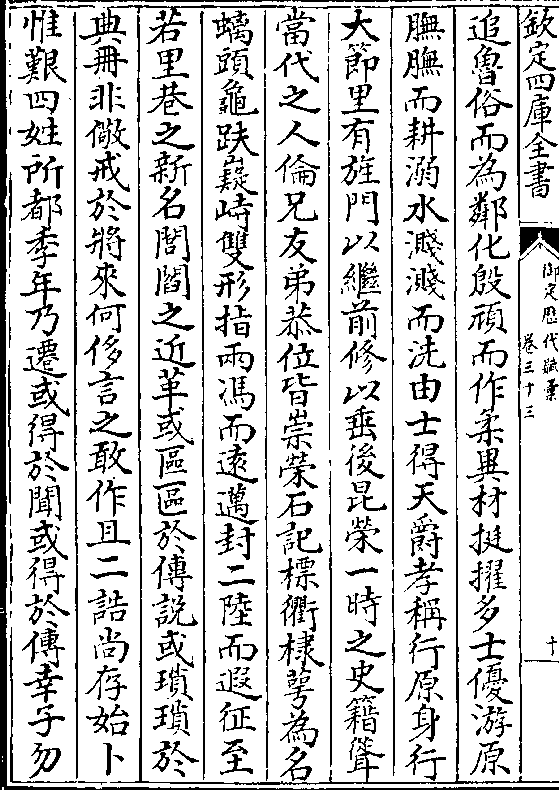 欽定四庫全書
御定歴代賦彙
卷三十三
十
追魯俗而為鄰化殷頑而作柔異材挺擢多士優游原
膴膴而耕溺水濺濺而洗由士得天爵孝稱行原身行
大節里有旌門以繼前修以垂後昆榮一時之史籍聳
當代之人倫兄友弟恭位皆崇榮石記標衢棣萼為名
螭頭龜趺嶷峙雙形指兩馮而遠邁封二陸而遐征至
若里巷之新名閭閻之近革或區區於傳説或瑣瑣於
典冊非儆戒於將來何侈言之敢作且二誥尚存始卜
惟艱四姓所都季年乃遷或得於聞或得於傳幸子勿